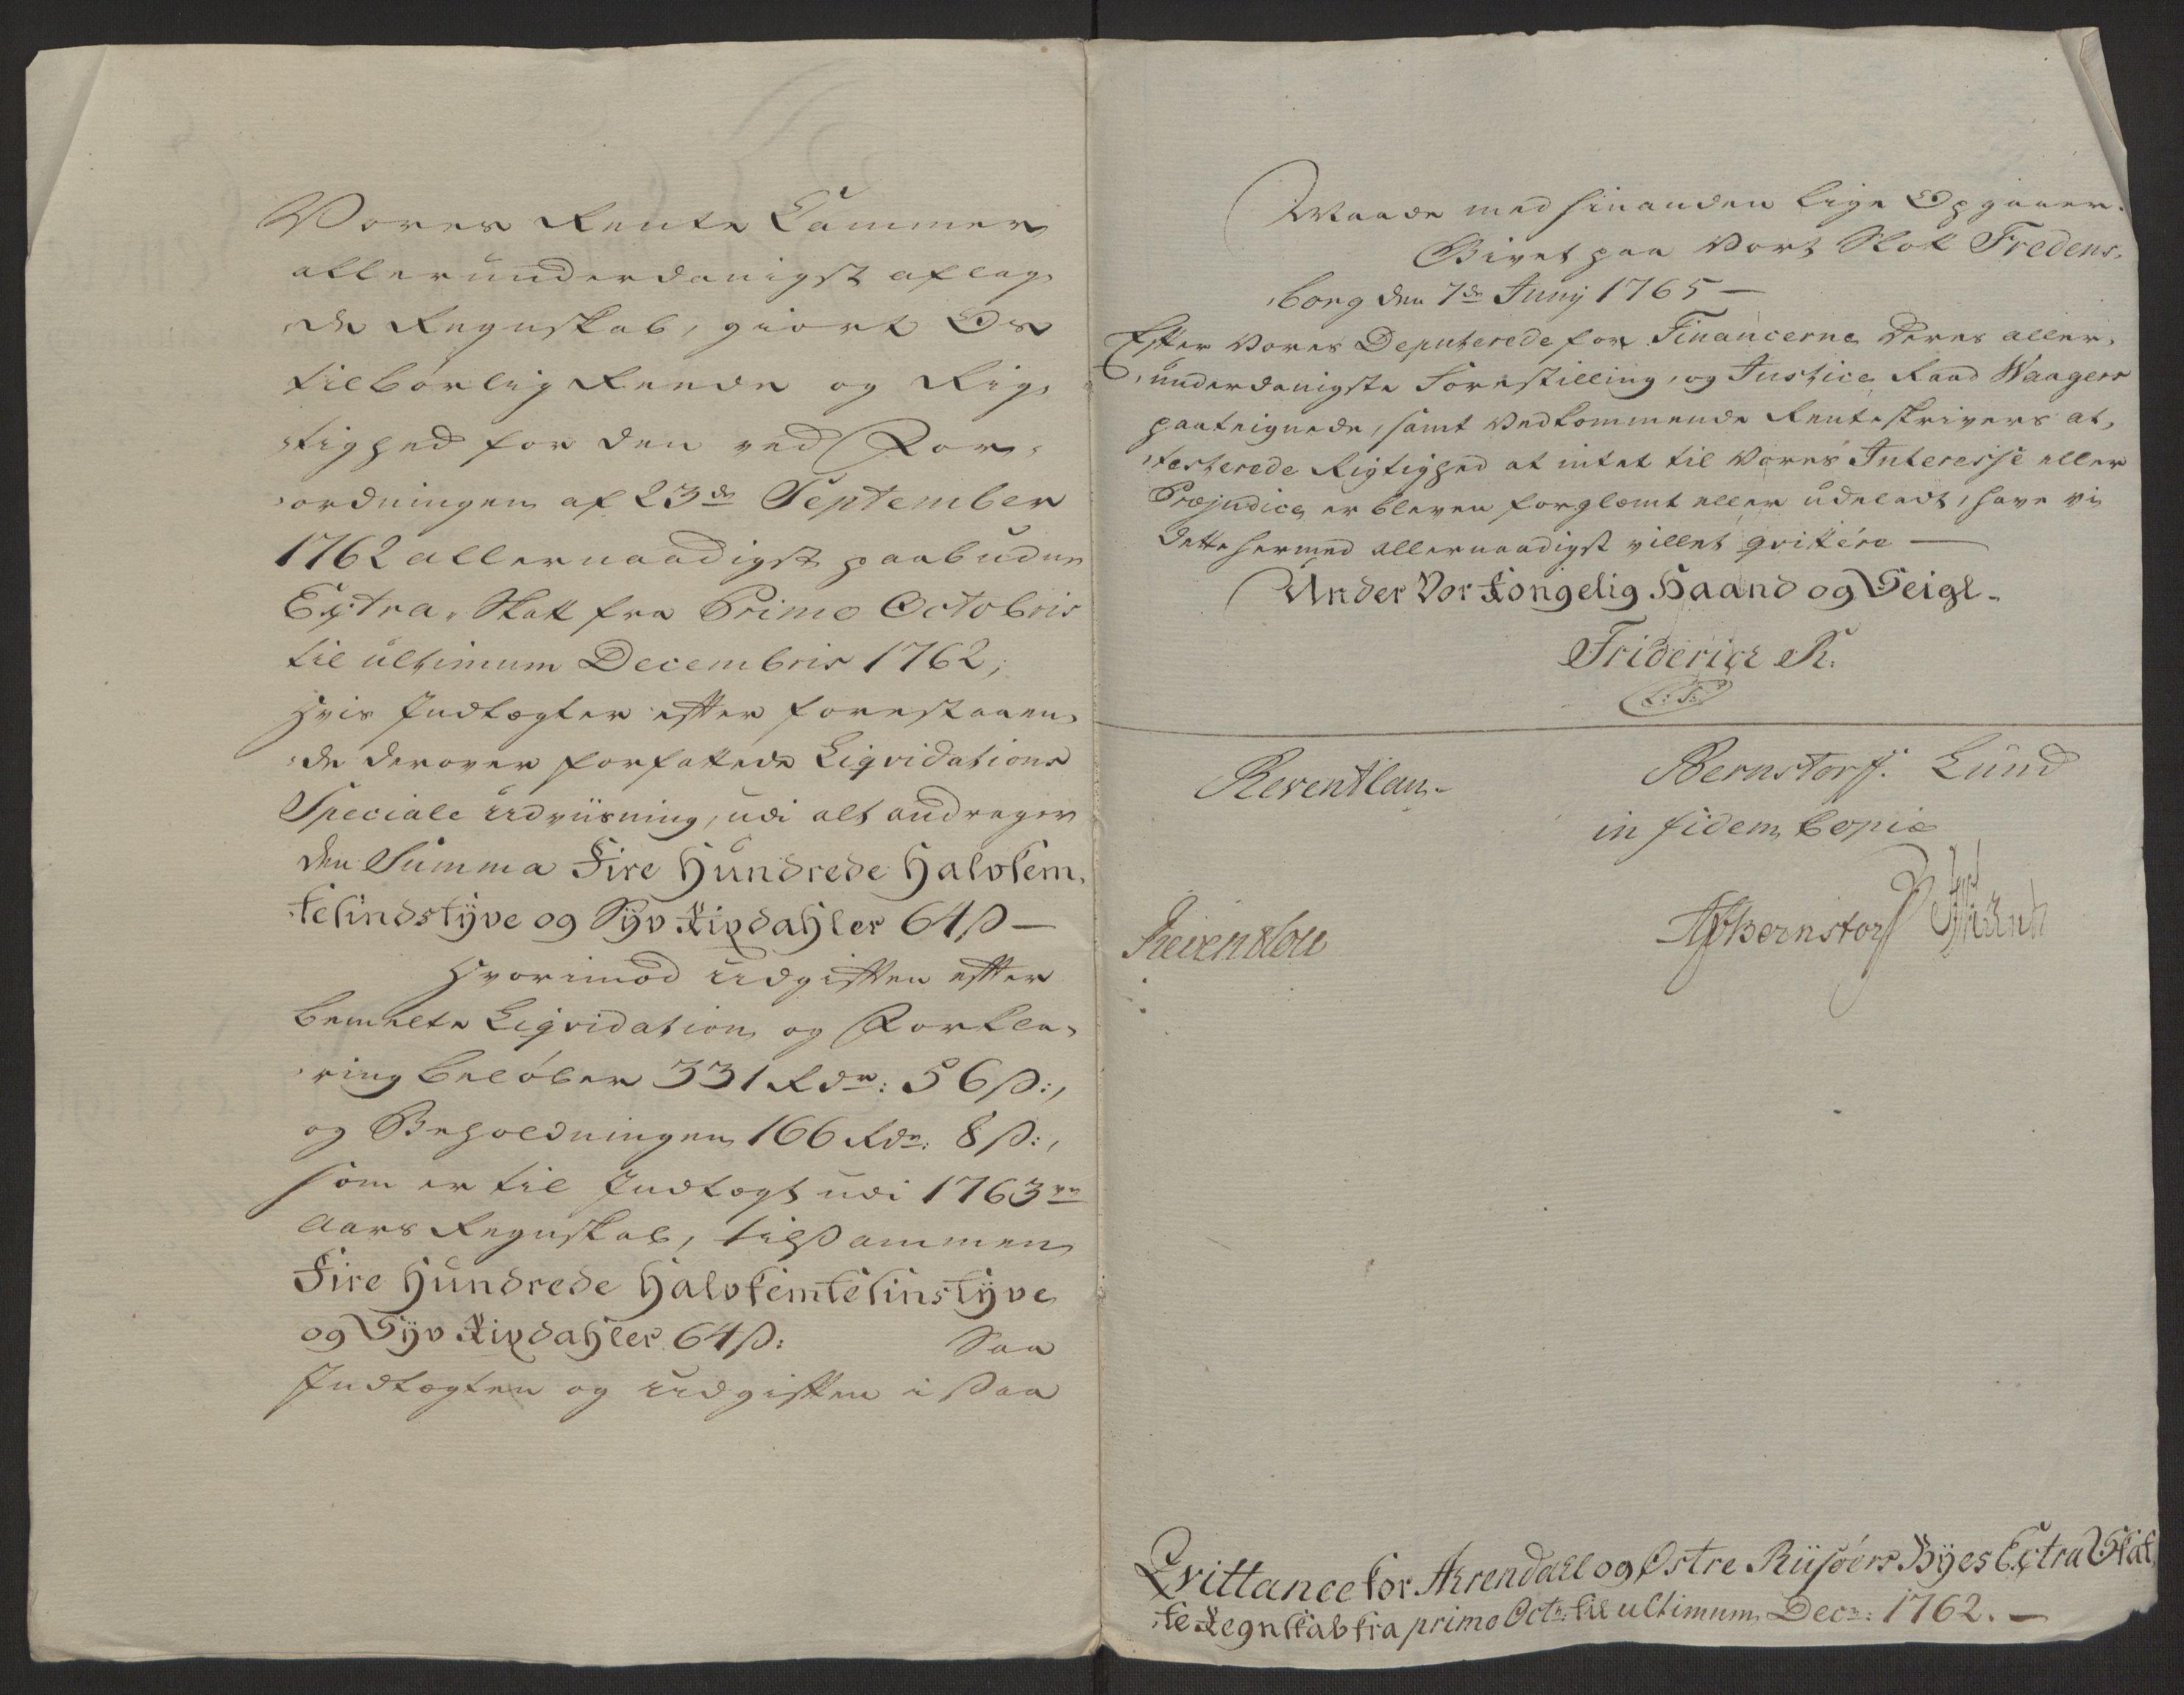 Vores Rente Cammer
allerunderdanigst aflag,
,de Regnskab, giort Os
tilbørlig Reede og Rig,
,tighed for den ved For,
,ordningen af 23de September
1762 allernaadigst paabudne
Extra, Skatt fra Primo Octobris
til ultimum Decembris 1762,
hvis Indtægter efter forestaaen,
,de derover forfattede Liqvidations
Speciale Udviisning, udi alt andrager
den Summa Fire Hundrede Halvfem,
,tesindstyve og Syv Rixdahler 64 ß —
Hvorimod Udgiften efter
bemelte Liqvidation og Forkla,
,ring beløber 331 Rdr: 56 ß:,
og Beholdningen 166 Rdr: 8 ß:,
som er til Indtægt udi 1763de
Aars Regnskab, tilsammen
Fire Hundrede Halvfemtesinstyve
og Syv Rixdahler 64 ß: Saa
Indtægten og Udgiften i saa
Maade med hinanden lige Opgaaer.
Givet paa Vort Slot Fredens,
,borg den 7de Junij 1765 —
Efter Vores Deputerede for Financerne deres aller,
,underdanigste Forestilling, og Justice Raad Waagers
paateignede, samt Vedkommende Renteskrivers at,
,testerede Rigtighed at intet til Vores Interesse eller
Præjudice er bleven forglemt eller udeladt, have vi
dette hermed allernaadigst villet qvittére —
Under Vor Kongelig Haand og Seigl.
Friderich R.
L: S:
Reventlau.
Bernstorff. Lund
in fidem Copiæ
Reventlou
Bernstorff
Qvittance for Arrendall og Østre Riisöers Byes Extra Skat,
,te Regnskab fra primo Octr: til ultimum Decr: 1762. —